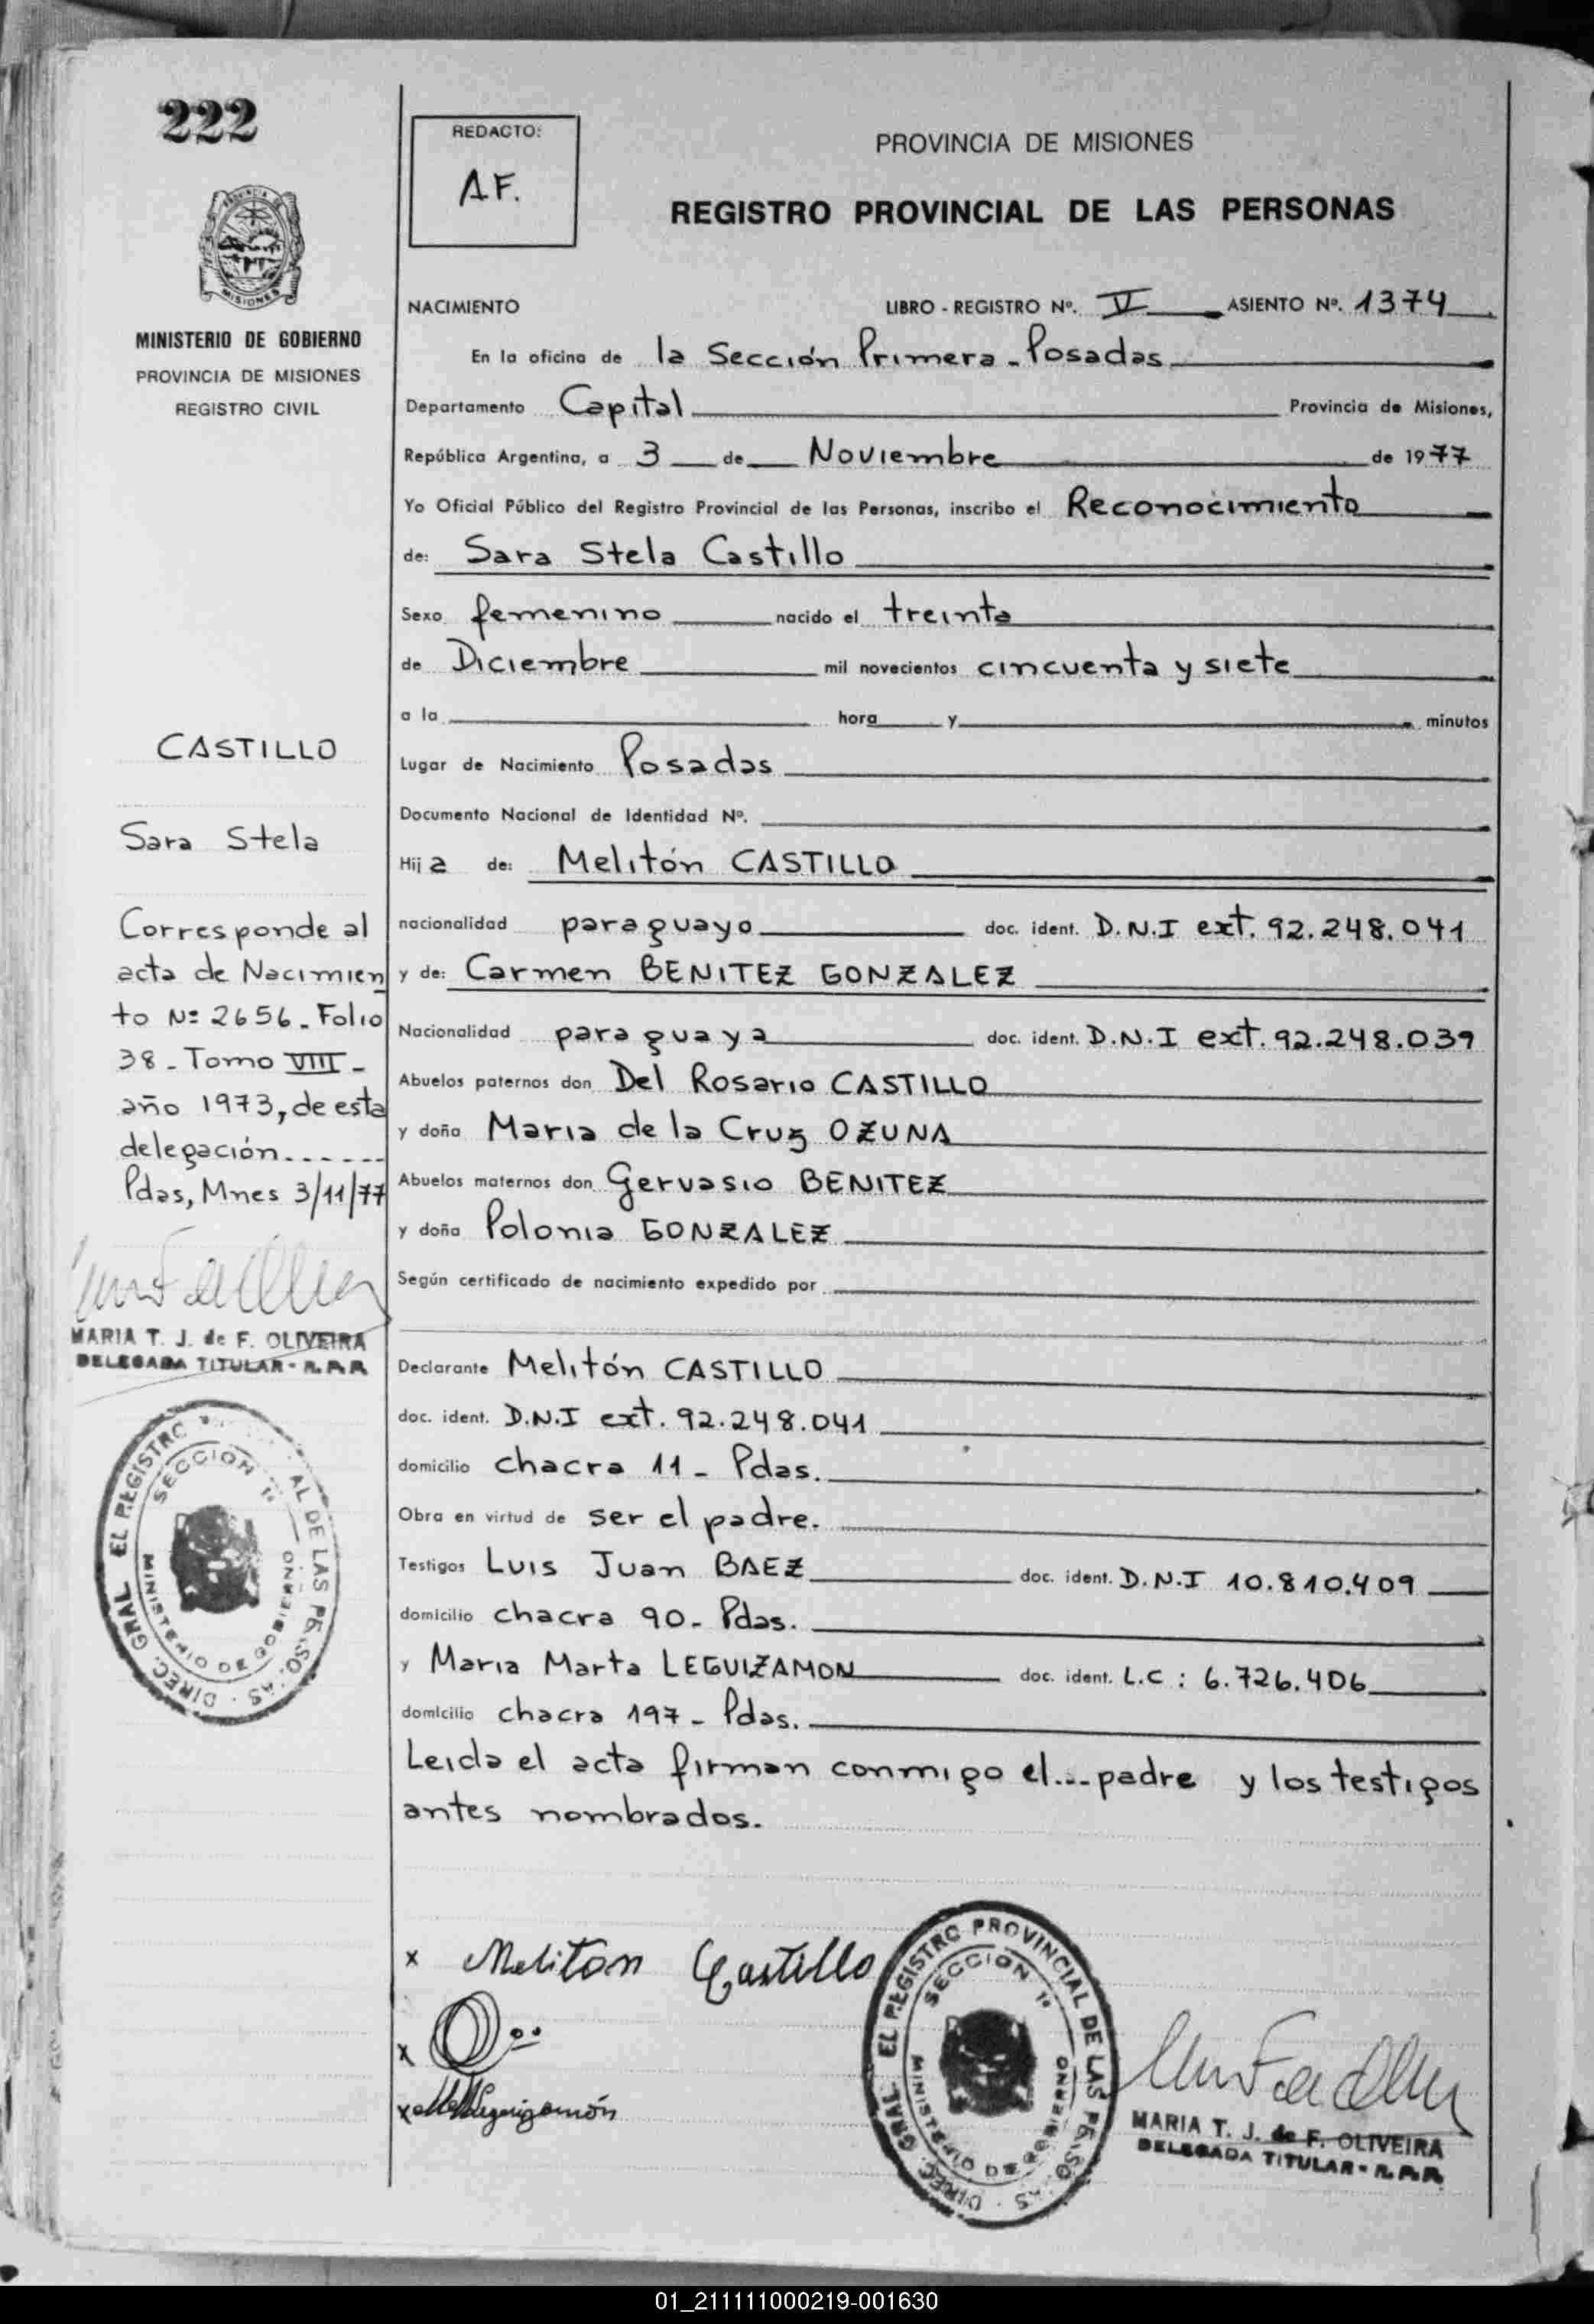 222
REDACTO:
AF.
PROVINCIA DE MISIONES
REGISTRO PROVINCIAL DE LAS PERSONAS
MISIONES
MINISTERIO DE GOBIERNO
PROVINCIA DE MISIONES
REGISTRO CIVIL
NACIMIENTO LIBRO - REGISTRO Nº. V ASIENTO Nº. 1374
En la oficina de la Sección Primera - Posadas
Departamento Capital Provincia de Misiones,
República Argentina, a 3 de Noviembre de 1977
Yo Oficial Público del Registro Provincial de las Personas, inscribo el Reconocimiento
de: Sara Stela Castillo
Sexo femenino nacido el treinta
de Diciembre mil novecientos cincuenta y siete
a la hora y minutos
Lugar de Nacimiento Posadas
Documento Nacional de Identidad Nº.
Hija de: Melitón CASTILLO
nacionalidad paraguayo doc. ident. D.N.I ext. 92.248.041
y de: Carmen BENITEZ GONZALEZ
Nacionalidad paraguaya doc. ident. D.N.I ext. 92.248.039
Abuelos paternos don Del Rosario CASTILLO
y doña Maria de la Cruz OZUNA
Abuelos maternos don Gervasio BENITEZ
y doña Polonia GONZALEZ
Según certificado de nacimiento expedido por
Declarante Melitón CASTILLO
doc. ident. D.N.I ext. 92.248.041
domicilio chacra 11 - Pdas.
Obra en virtud de ser el padre.
Testigos Luis Juan BAEZ doc. ident. D.N.I 10.810.409
domicilio chacra 90 - Pdas.
y Maria Marta LEGUIZAMON doc. ident. L.C : 6.726.406
domicilio chacra 197 - Pdas.
Leida el acta firman conmigo el... padre y los testigos
antes nombrados.
CASTILLO
Sara Stela
Corresponde al
acta de Nacimien
to Nº 2656 - Folio
38 - Tomo VIII -
año 1973, de esta
delegación......
Pdas, Mnes 3/11/77
MARIA T. J. de F. OLIVEIRA
DELEGADA TITULAR - R.P.P.
DIREC. GRAL EL REGISTRO AL DE LAS
SECCION 1ª
MINISTERIO DE GOBIERNO
x Meliton Castillo
x
x Leguizamón
DIREC. GRAL EL REGISTRO PROVINCIAL DE LAS
SECCION 1ª
MINISTERIO DE GOBIERNO
MARIA T. J. de F. OLIVEIRA
DELEGADA TITULAR - R.P.P.
01_211111000219-001630